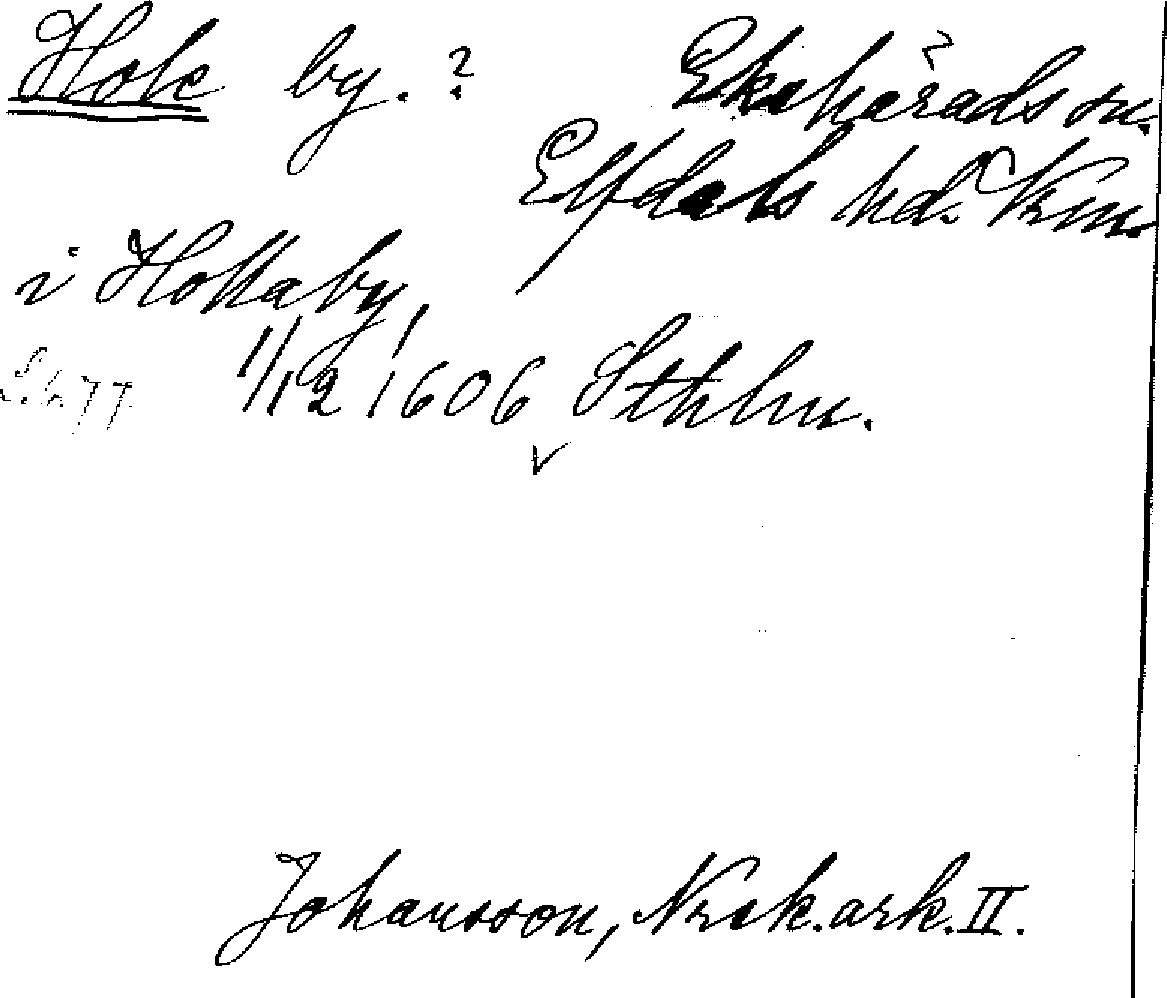 Hole by. ? Ekshärads sn.
Elfdals hd. Vrm.
i Hollaby,
1/12 1606 Sthlm.
Johansson, Nrsk.ark.II.